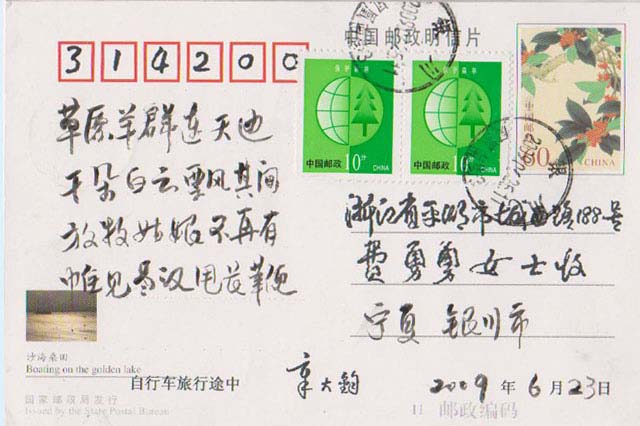 中国邮政明信片
314200
保护森林
保护森林
中国邮政
10分
CHINA
中国邮政
10分
CHINA
中国邮政
80分
CHINA
草原羊群连天地
千朵白云飘其间
放牧姑娘不再有
惟见
鞭
浙江省平湖市城西路188号
费勇勇女士收
宁夏 银川市
沙海桑田
Boating on the golden lake
自行车旅行途中
章大钧
2009年6月23日
国家邮政局发行
Issued by the State Postal Bureau
11 邮政编码